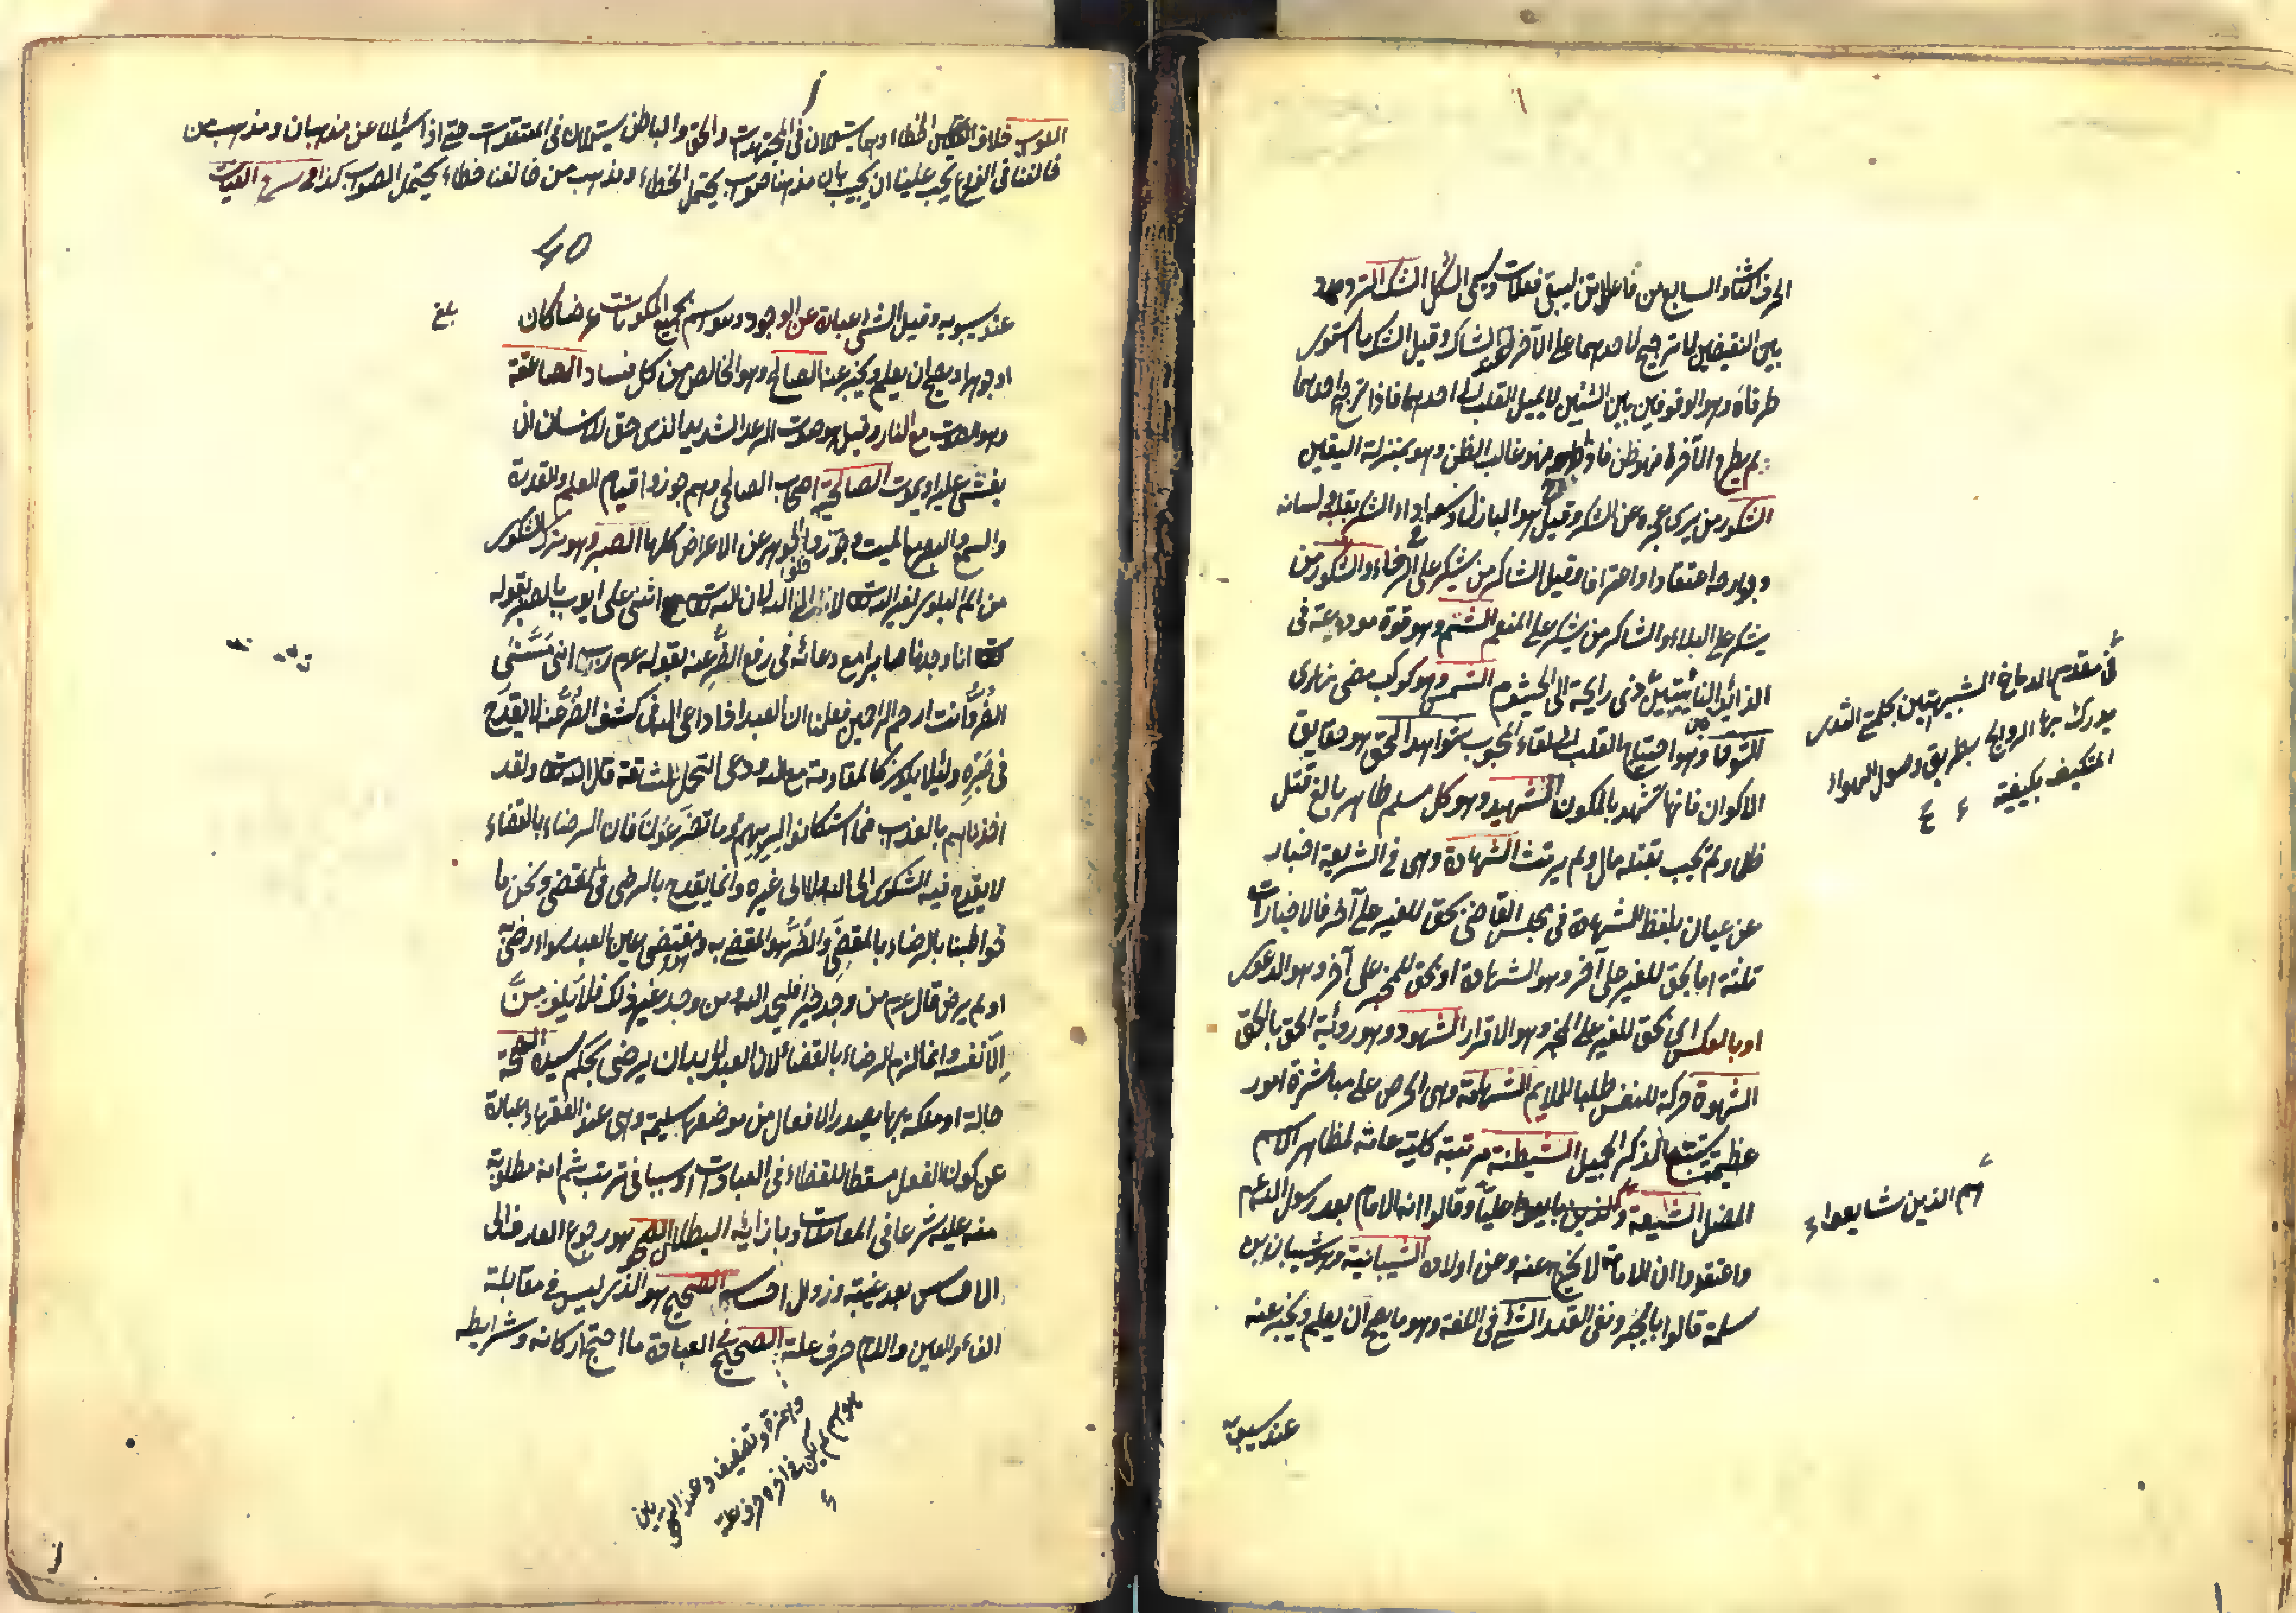 الحرف الثانى والسابع من فاعلاتن ليبقى فعلات ويسمى اشكل الشك التردد
بين النقيضين لا ترجيح لاحدهما على الآخر عند الشاك وقيل الشك ما استوى
طرفاه وهو الوقوف بين الشيئين لا يميل القلب الى احدهما فاذا ترجح احدهما
ولم يطرح الآخر فهو ظن فاذا طرحه فهو غالب الظن وهو بمنزلة اليقين
الشكور من يرى عجزه عن الشكر وقيل هو الباذل وسعه فى اداء الشكر بقلبه ولسانه
وجوارحه اعتقادا واعترافا وقيل الشاكر من يشكر على الرخاء والشكور من
يشكر على البلاء والشاكر من يشكر على المنع الشم وهو قوة مودعة فى
الزائدتين النابتتين ذى رايحة الى الخيشوم الشمس وهو كوكب مضئ نهارى
الشوق وهو احتياج القلب الى لقاء المحبوب شواهد الحق هو حقايق
الاكوان فانها تشهد بالمكون الشهيد وهو كل مسلم طاهر بالغ قتل
ظلما ولم يجب بقتله مال ولم يرتث الشهادة وهى فى الشريعة اخبار
عن عيان بلفظ الشهادة فى مجلس القاضى بحق للغير على آخر فالاخبارات
ثلثة اما بحق للغير على آخر وهو الشهادة او بحق للمخبر على آخر وهو الدعوى
او بالعكس اى بحق للغير على المخبر وهو الاقرار الشهود وهو رؤية الحق بالحق
الشهوة حركة للنفس طلبا للملايم الشهامة وهى الحرص على مباشرة امور
عظيمة تستتبع الذكر الجميل الشيطنة مرتبة كلية عامة لمظاهر الاسم
المضل الشيعة والذين بايعوا عليا وقالوا انه الامام بعد رسول الله عم
واعتقدوا ان الامامة لا تخرج عنه وعن اولاده الشيبانية وهو شيبان بن
سلمة قالوا بالجبر ونفى القدر الشئ فى اللغة وهو ما يصح ان يعلم ويخبر عنه
عند سيبويه
فى مقدم الدماغ الشبيهتين بحلمتى الثدى
يدرك بها الروايح بطريق وصول الهواء
المتكيف بكيفية
هم الذين شايعوا
الصواب خلاف الخطاء وهما يستعملان فى المجتهدات والحق والباطل يستعملان فى المعتقدات حتى اذا سئلنا عن مذهبنا ومذهب من
خالفنا فى الفروع يجب علينا ان نجيب بان مذهبنا صواب يحتمل الخطاء ومذهب من خالفنا خطاء يحتمل الصواب كذا فى
40
عند سيبويه وقيل الشئ عبارة عن الوجود وهو اسم لجميع المكونات عرضا كان
بلغ
او جوهرا ويصح ان يعلم ويخبر عنه الصالح وهو الخالص من كل فساد الصاعقة
وهو الصوت مع النار وقيل هو صوت الرعد الشديد الذى حق للانسان ان
يغشى عليه او يموت الصالحية اصحاب الصالحى وهم جوزوا قيام العلم والقدرة
والسمع والبصر بالميت وجوزوا خلو الجوهر عن الاعراض كلها الصبر وهو ترك الشكوى
من الم البلوى لغير الله لا الى الله لان الله تعالى اثنى على ايوب بالصبر بقوله
انا وجدناه صابرا مع دعائه فى رفع الضر عنه بقوله عم رب انى مسنى
الضر وانت ارحم الراحمين فعلمنا ان العبد اذا دعا الله فى كشف الضر عنه لا يقدح
فى صبره ولئلا يكون كالمقاومة مع الله ودعوى التحمل لمشاقه قال الله ولقد
اخذناهم بالعذاب فما استكانوا لربهم وما يتضرعون فان الرضاء بالقضاء
لا يقدح فيه الشكوى الى الله ولا الى غيره وانما يقدح بالرضى فى المقضى ونحن ما
خوطبنا بالرضاء بالمقضى والضر هو المقضى به وهو مقتضى عين العبد سواء رضى به
او لم يرض قال عم من وجد خيرا فليحمد الله ومن وجد غير ذلك فلا يلومن
الا نفسه وانما لزم الرضاء بالقضاء لان العبد لابد ان يرضى بحكم سيده الصحة
حالة او ملكة بها يصدر الافعال من موضعها سليمة وهى عند الفقهاء عبارة
عن كون الفعل مسقطا للقضاء فى العبادات او سببا فى ترتب ثمراته مطلوبة
منه عليه شرعا فى المعاملات وبازائه البطلان الصحو هو رجوع العارف الى
الاحساس بعد غيبته وزوال احساسه الصحيح هو الذى ليس فى مقابلة
الفاء والعين واللام حرف علة الصحيح فى العبادة ما اجتمع اركانه وشرايطه
وهمزة وتضعيف وعند النحويين
هو اسم لم يكن فى آخره حرف علة